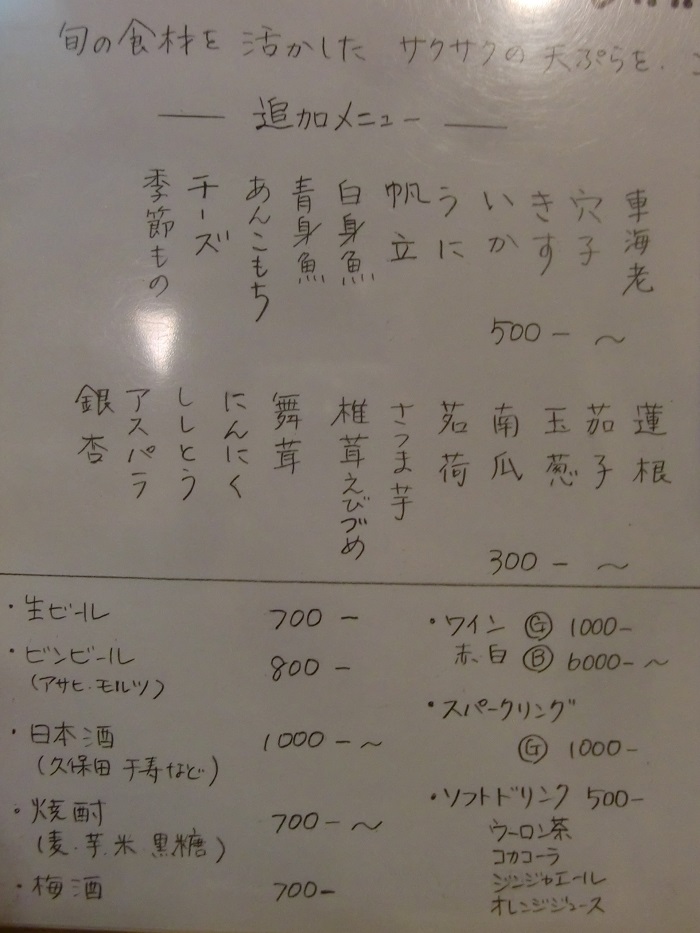 旬の食材を 活かした サクサクの 天ぷらを、
追加メニュー
車海老
穴子
きす
いか
うに
帆立
白身魚
青身魚
あんこもち
チーズ
季節もの
500-～
蓮根
茄子
玉葱
南瓜
茗荷
さつま芋
椎茸えびづめ
舞茸
にんにく
ししとう
アスパラ
銀杏
300-～
・生ビール 700-
・ビンビール 800-
(アサヒ・モルツ)
・日本酒 1000-～
(久保田 千寿など)
・焼酎 700-～
(麦・芋・米・黒糖)
・梅酒 700-
・ワイン Ⓖ 1000-
赤、白 Ⓑ 6000-～
・スパークリング
Ⓖ 1000-
・ソフトドリンク 500-
ウーロン茶
コカコーラ
ジンジャエール
オレンジジュース